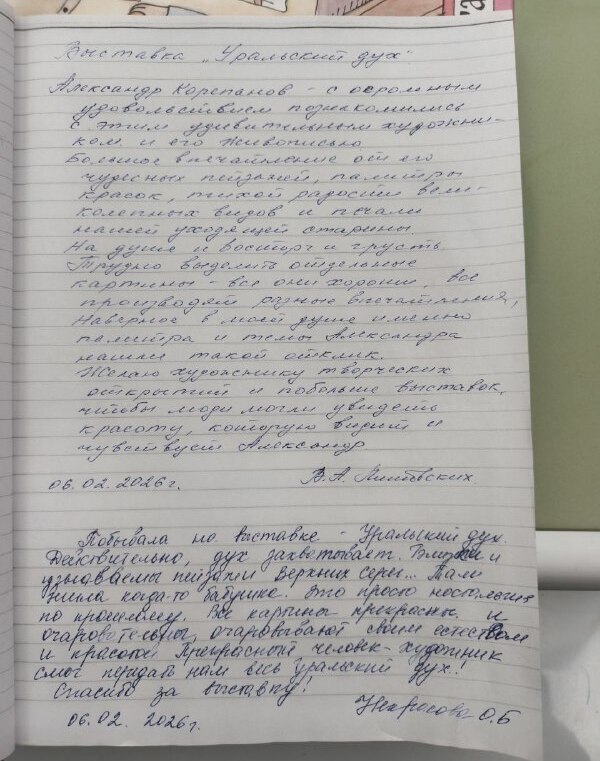 Выставка „Уральский дух"
Александр Корепанов - с огромным
удовольствием познакомились
с этим удивительным художни-
ком и его живописью.
Большое впечатление от его
чудесных пейзажей, палитры
красок, тихой радости вели-
колепных видов и печали
нашей уходящей старины.
На душе и восторг и грусть
Трудно выделить отдельные
картины - все они хороши, все
производят разные впечатления,
Наверное в моей душе именно
палитра и темы Александра
нашли такой отклик.
Желаю художнику творческих
открытий и побольше выставок,
чтобы люди могли увидеть
красоту, которую видит и
чувствует Александр
06.02.2026г.
В.А.
Побывала на выставке - Уральский дух.
Действительно, дух захватывает. Близки и
узнаваемы пейзажи Верхних Серег... Там
жила когда-то бабушка. Это просто ностальгия
по прошлому. Все картины прекрасны и
очаровательны, очаровывают своим естеством
и красотой Прекрасный человек - художник
смог передать нам весь Уральский дух!
Спасибо за выставку!
06.02. 2026г.
Некрасова О.Б